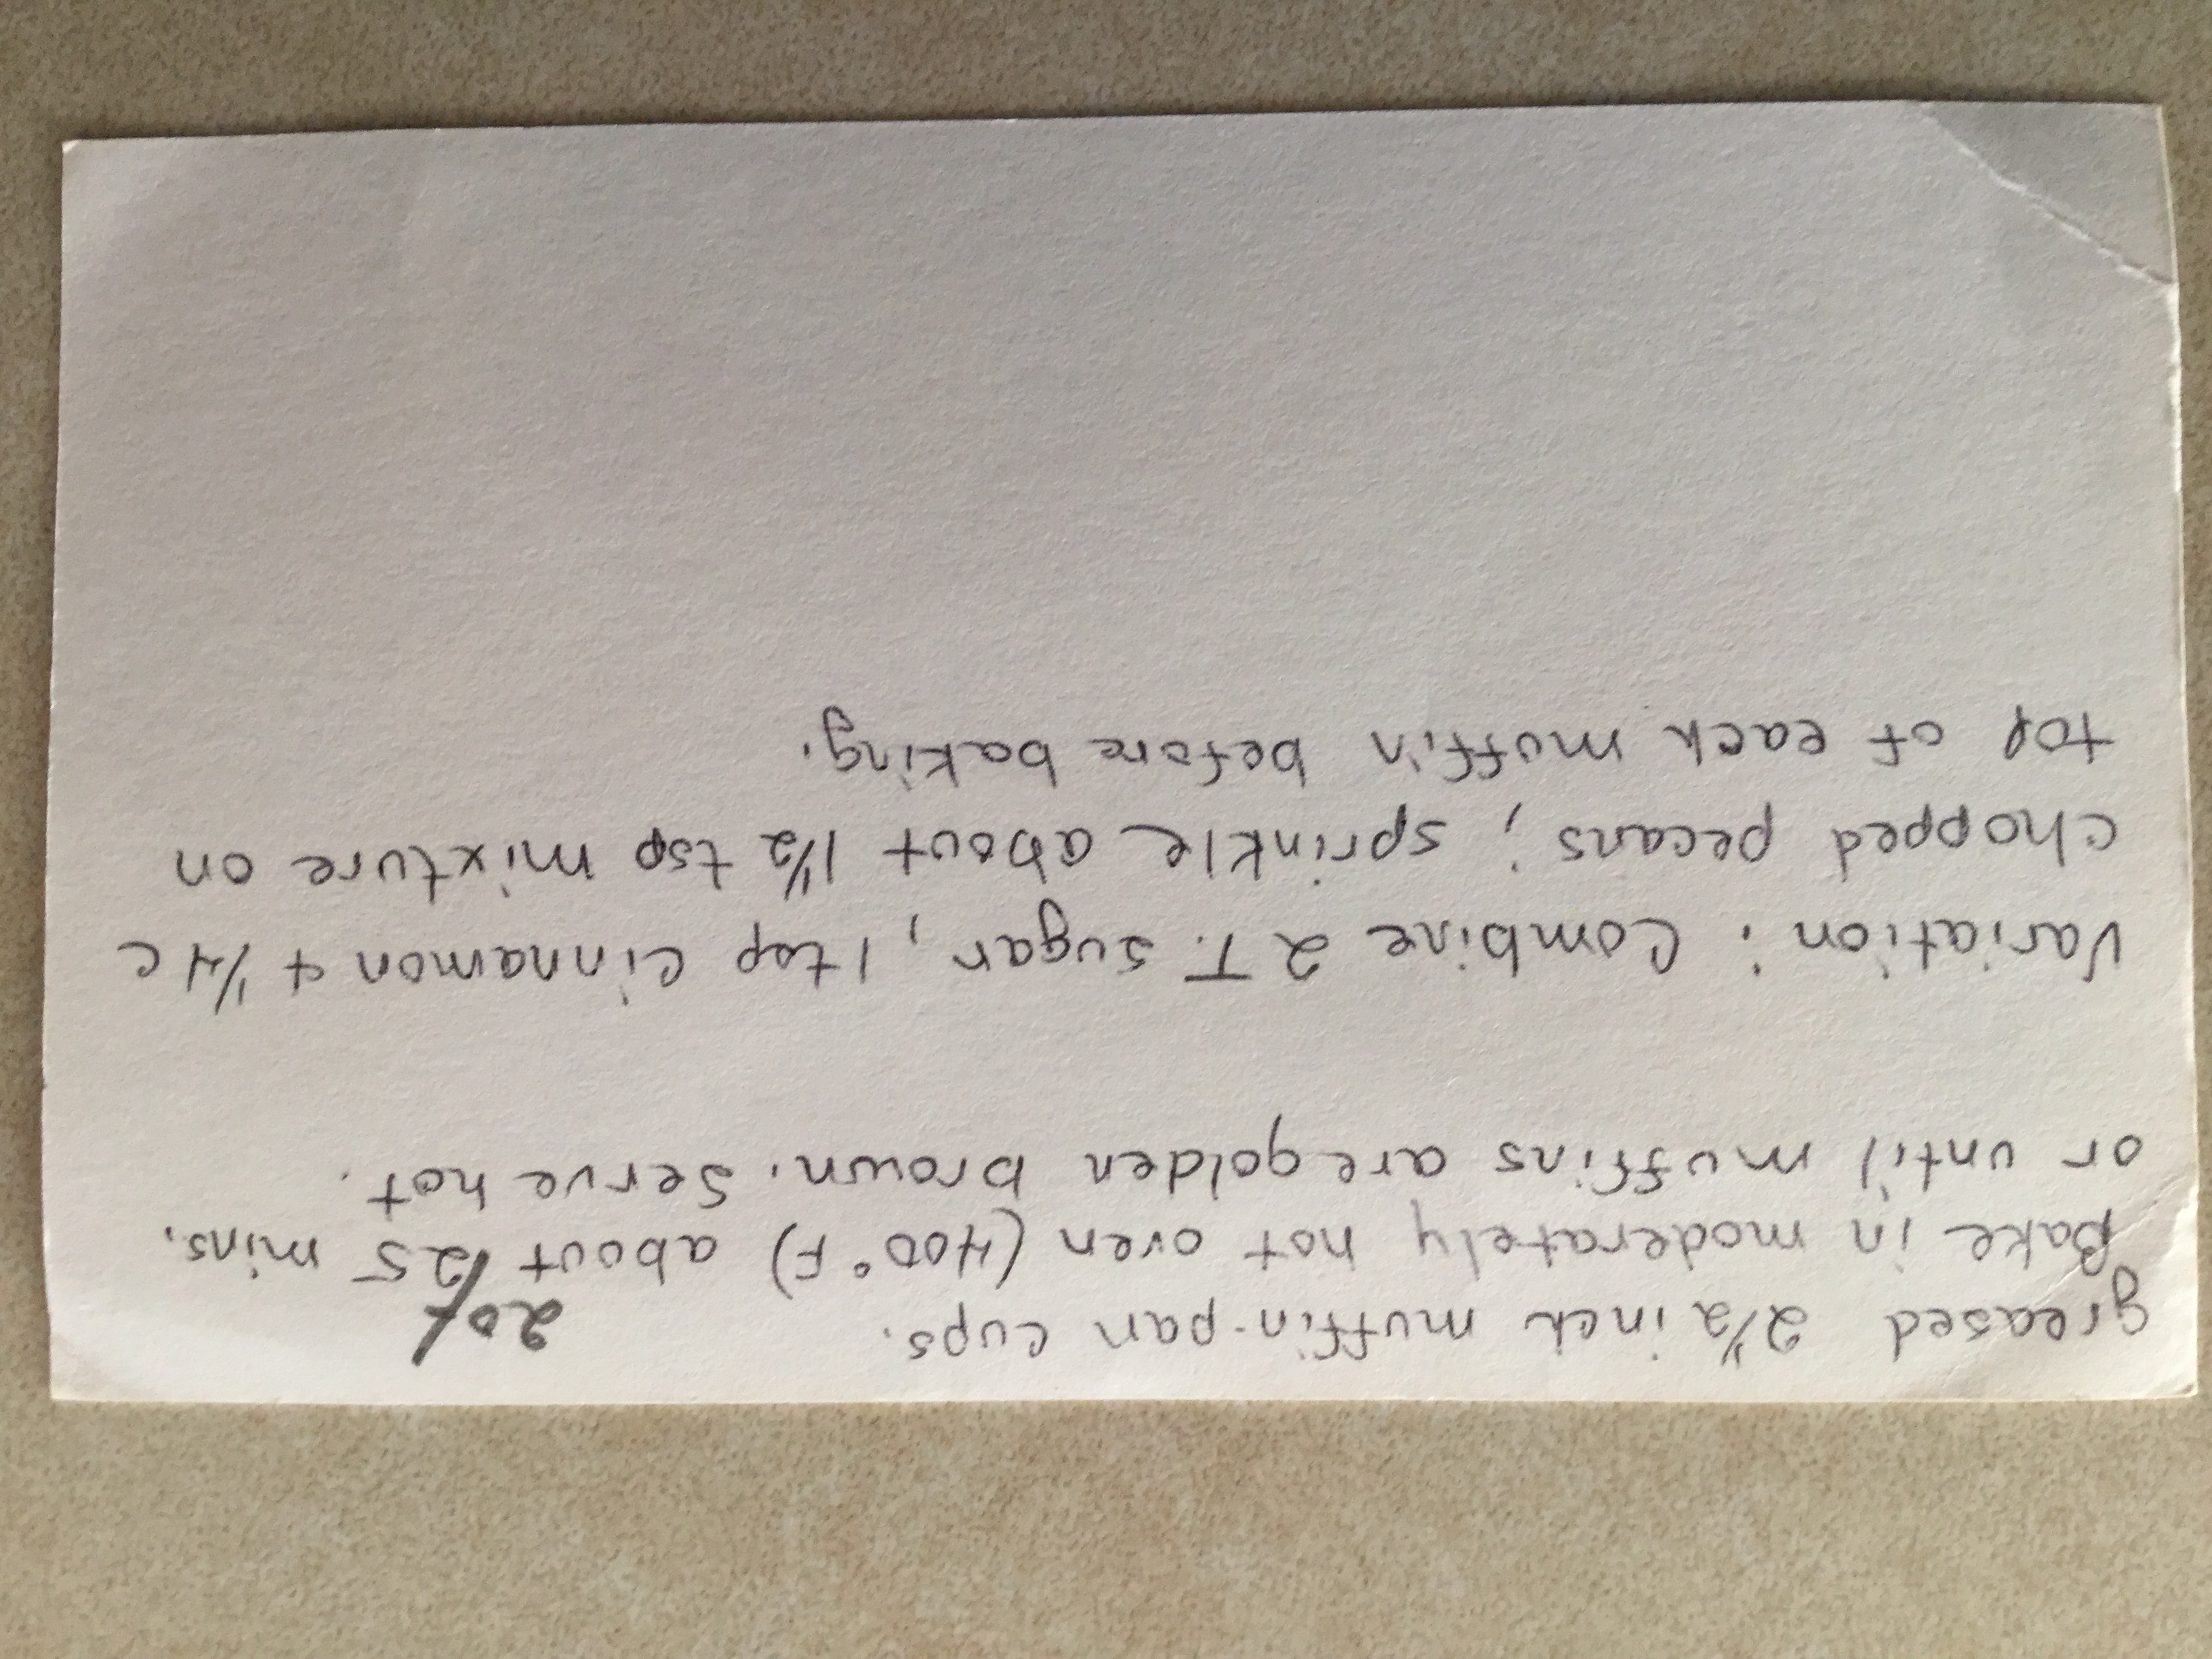 greased 2½ inch muffin-pan cups.
20/
Bake in moderately hot oven (400° F) about 25 mins.
or until muffins are golden brown. Serve hot.
Variation: Combine 2 T. sugar, 1 tsp cinnamon & ¼ c
chopped pecans; sprinkle about 1½ tsp mixture on
top of each muffin before baking.